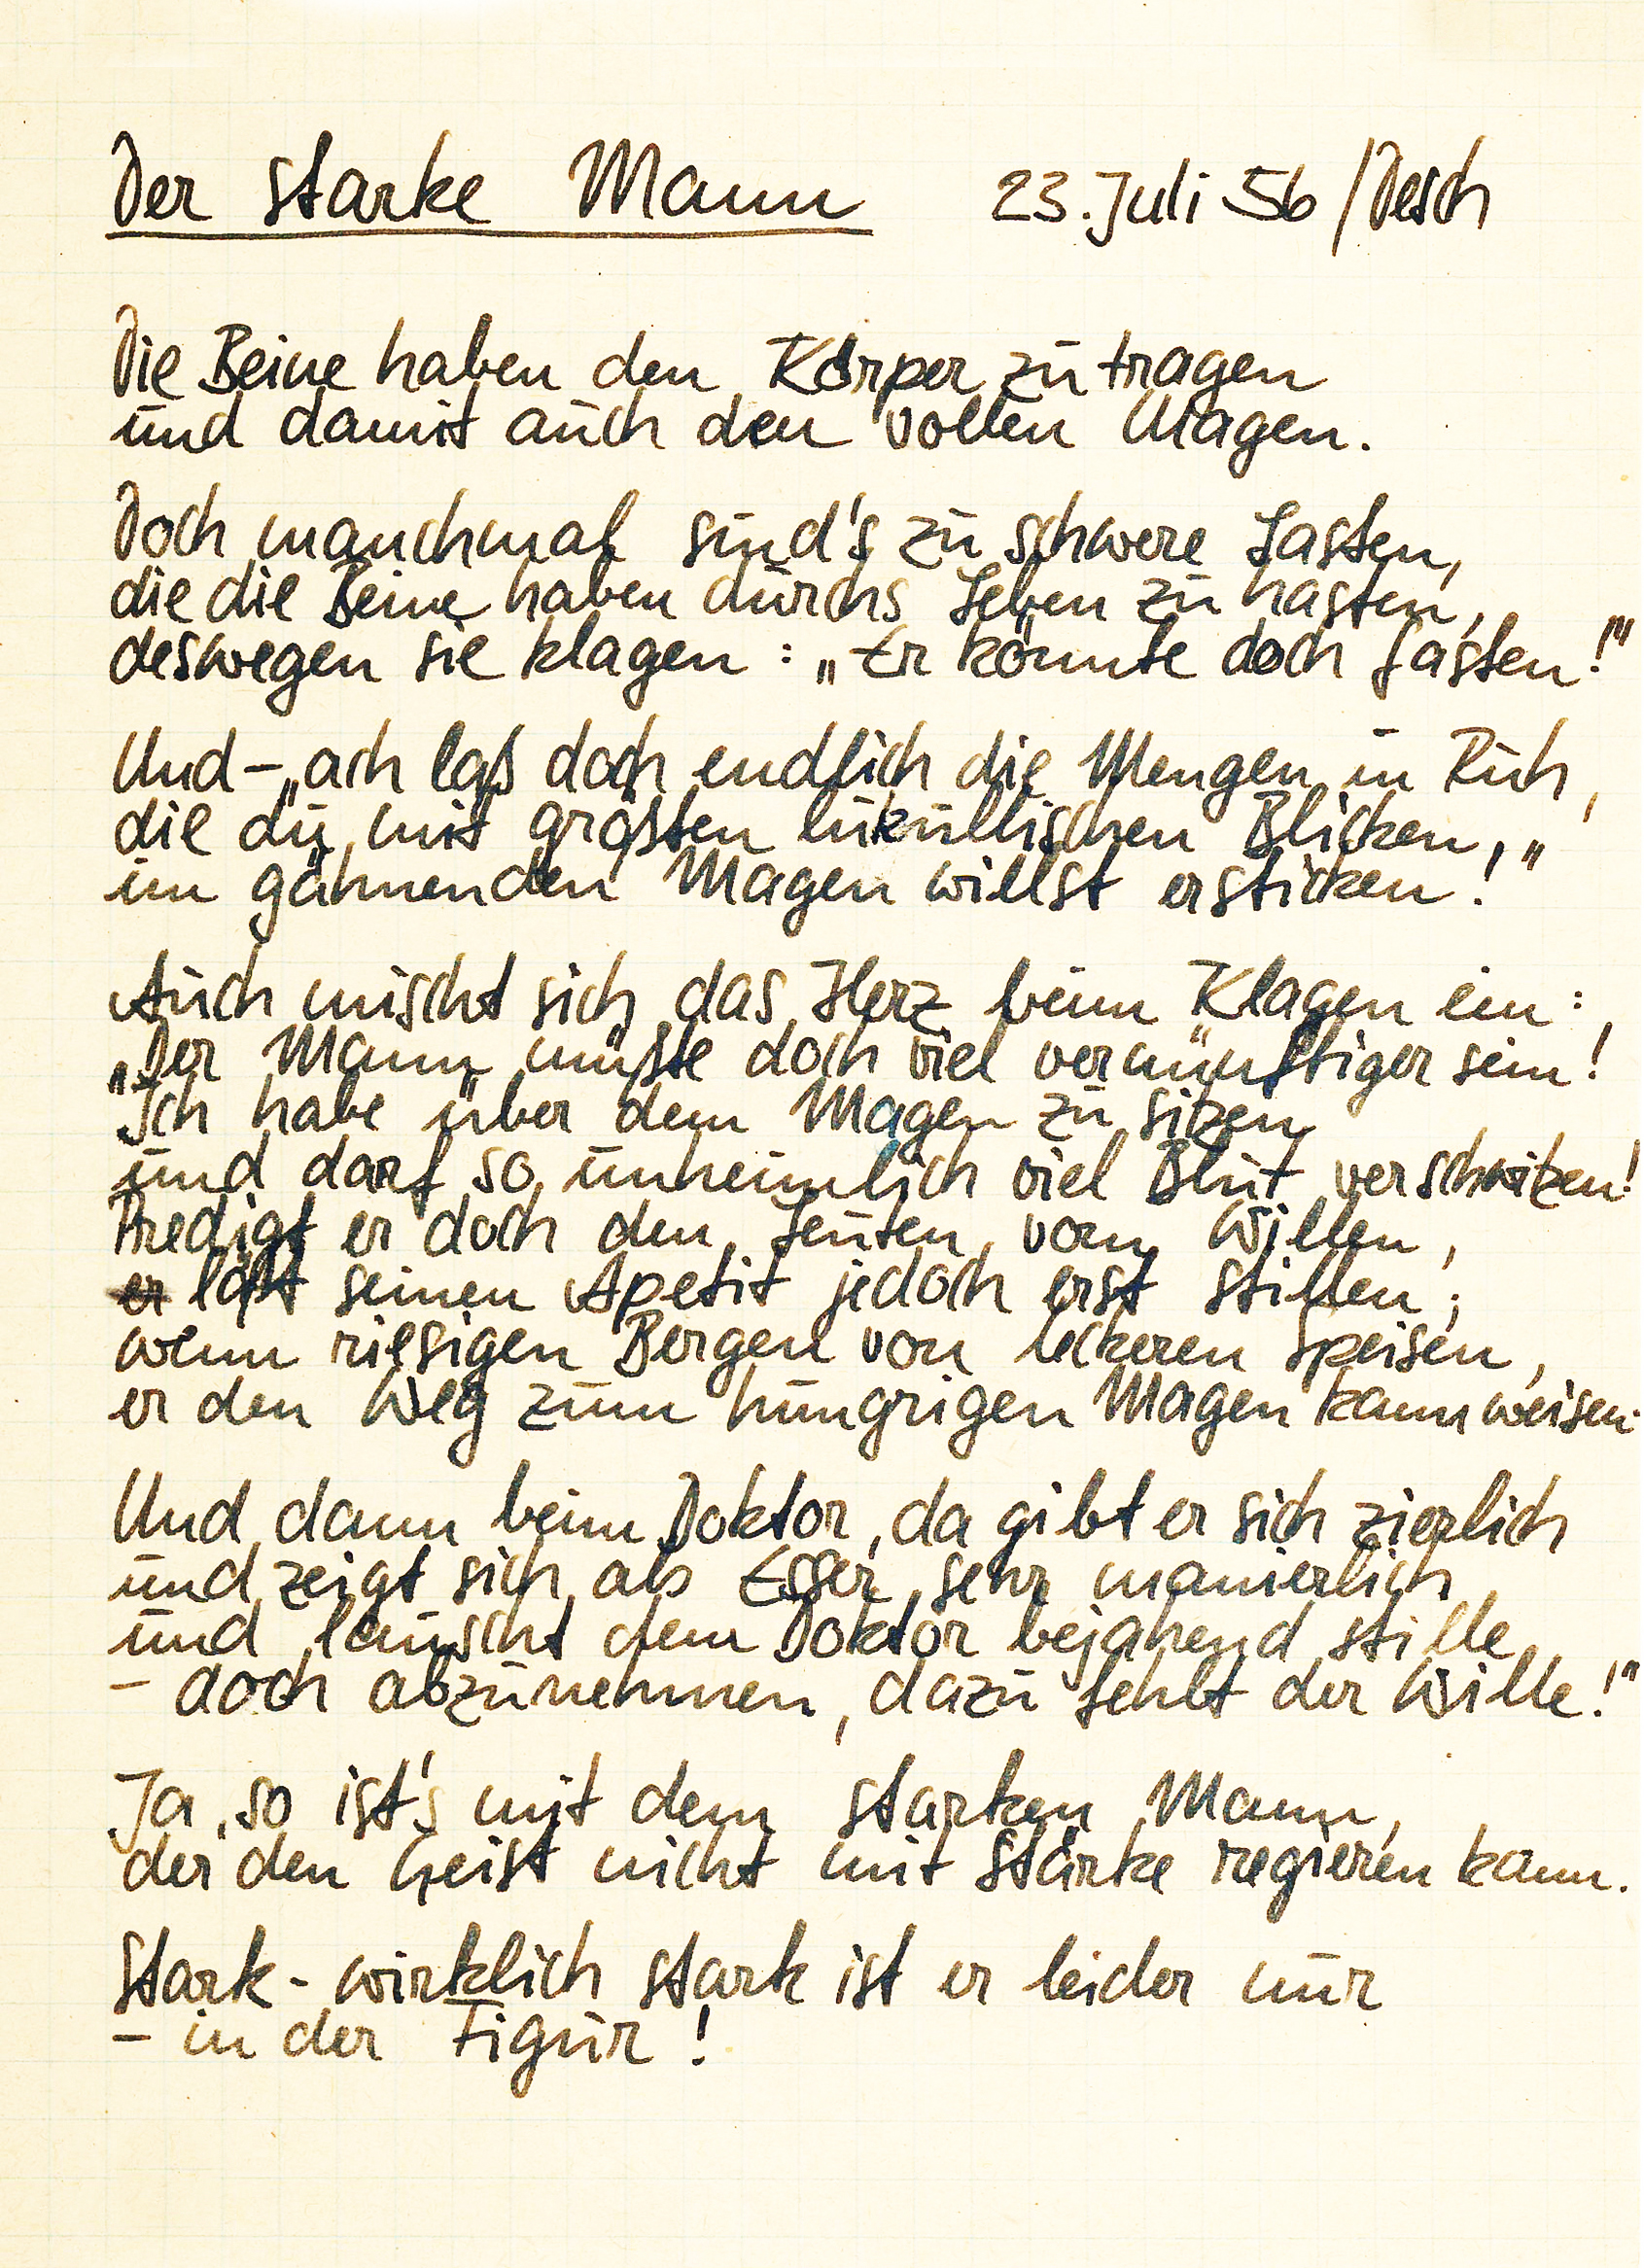 Der starke Mann 23. Juli 56 / Desch
Die Beine haben den Körper zu tragen
und damit auch den vollen Magen.
Doch manchmal sind's zu schwere Lasten,
die die Beine haben durchs Leben zu hasten,
deswegen sie klagen: „Er könnte doch fasten!"
Und – „ach laß doch endlich die Mengen in Ruh,
die du mit größten lukullischen Blicken,
im gähnenden Magen willst ersticken!"
Auch mischt sich das Herz beim Klagen ein:
„Der Mann müßte doch viel vernünftiger sein!
Ich habe über dem Magen zu sitzen
und darf so unheimlich viel Blut verschwitzen!
Predigt er doch den Leuten vom Willen,
er läßt seinen Apetit jedoch erst stillen;
wenn riesigen Bergen von leckeren Speisen,
er den Weg zum hungrigen Magen kann weisen.
Und dann beim Doktor, da gibt er sich zierlich
und zeigt sich als Esser sehr manierlich
und lauscht dem Doktor bejahend stille
– doch abzunehmen, dazu fehlt der Wille!"
Ja, so ist's mit dem starken Mann,
der den Geist nicht mit Stärke regieren kann.
Stark - wirklich stark ist er leider nur
– in der Figur!